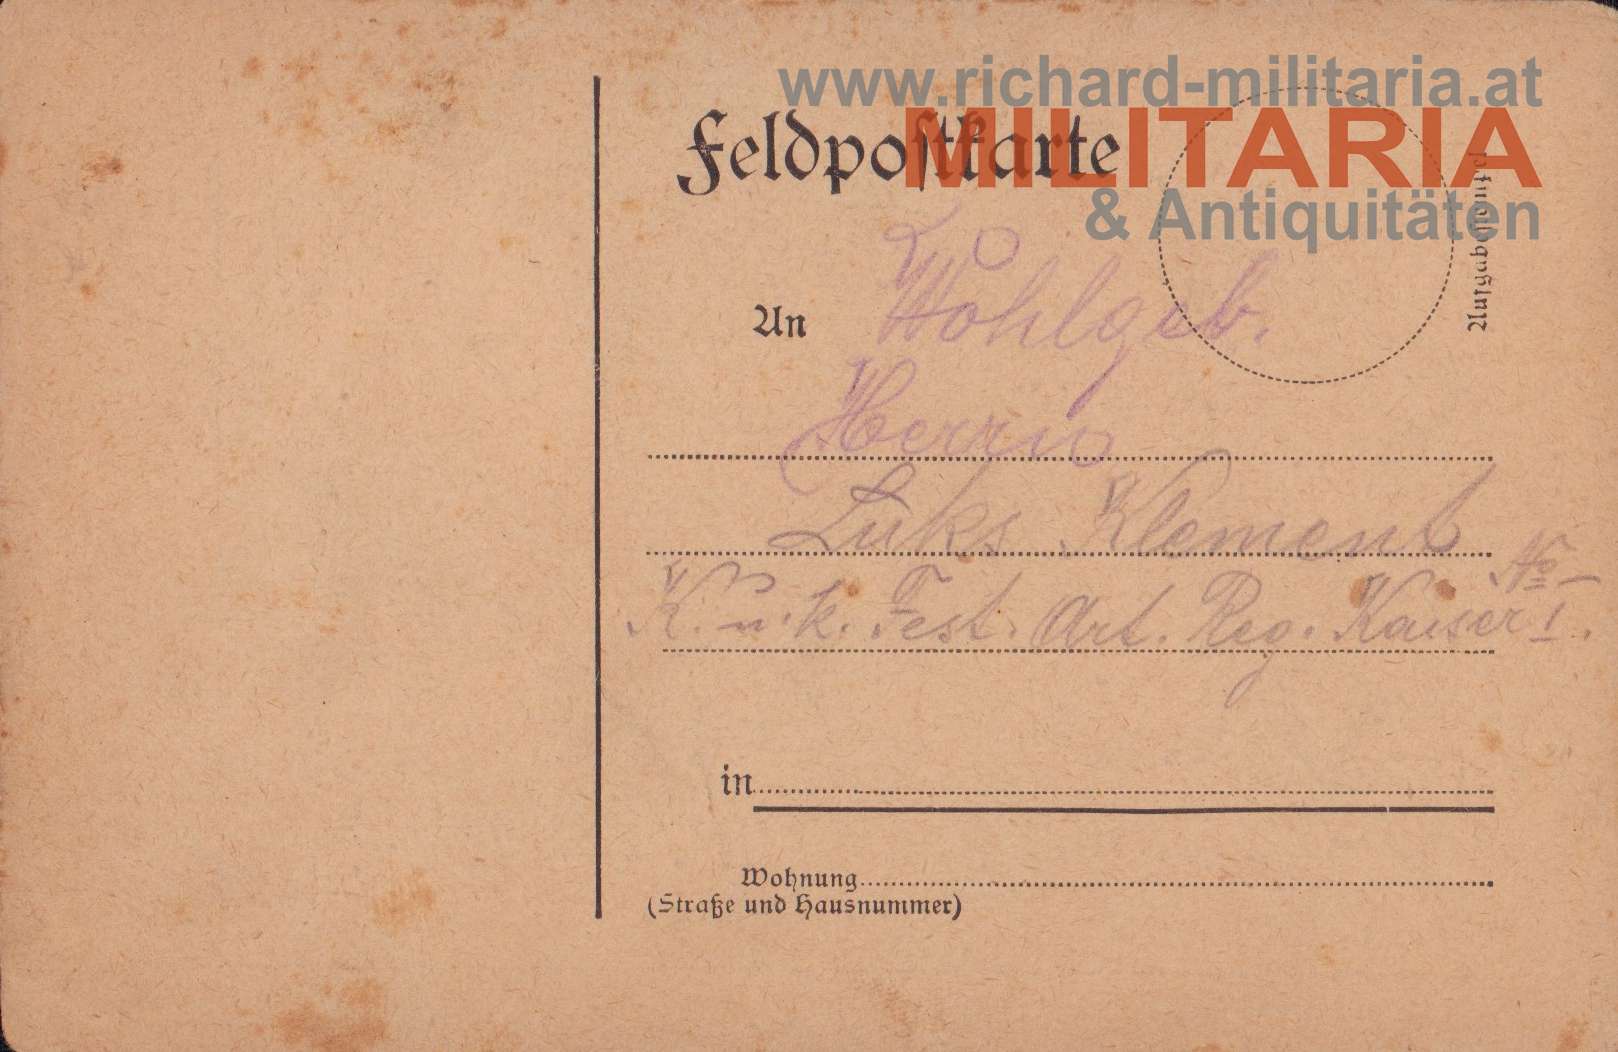 www.richard-militaria.at
MILITARIA
& Antiquitäten
Feldpostkarte
Aufgabestempel
An Wohlgeb.
Herrn
Luks Klement
K. u. k. Fest. Art. Reg. Kaiser No I.
in
Wohnung
(Straße und Hausnummer)